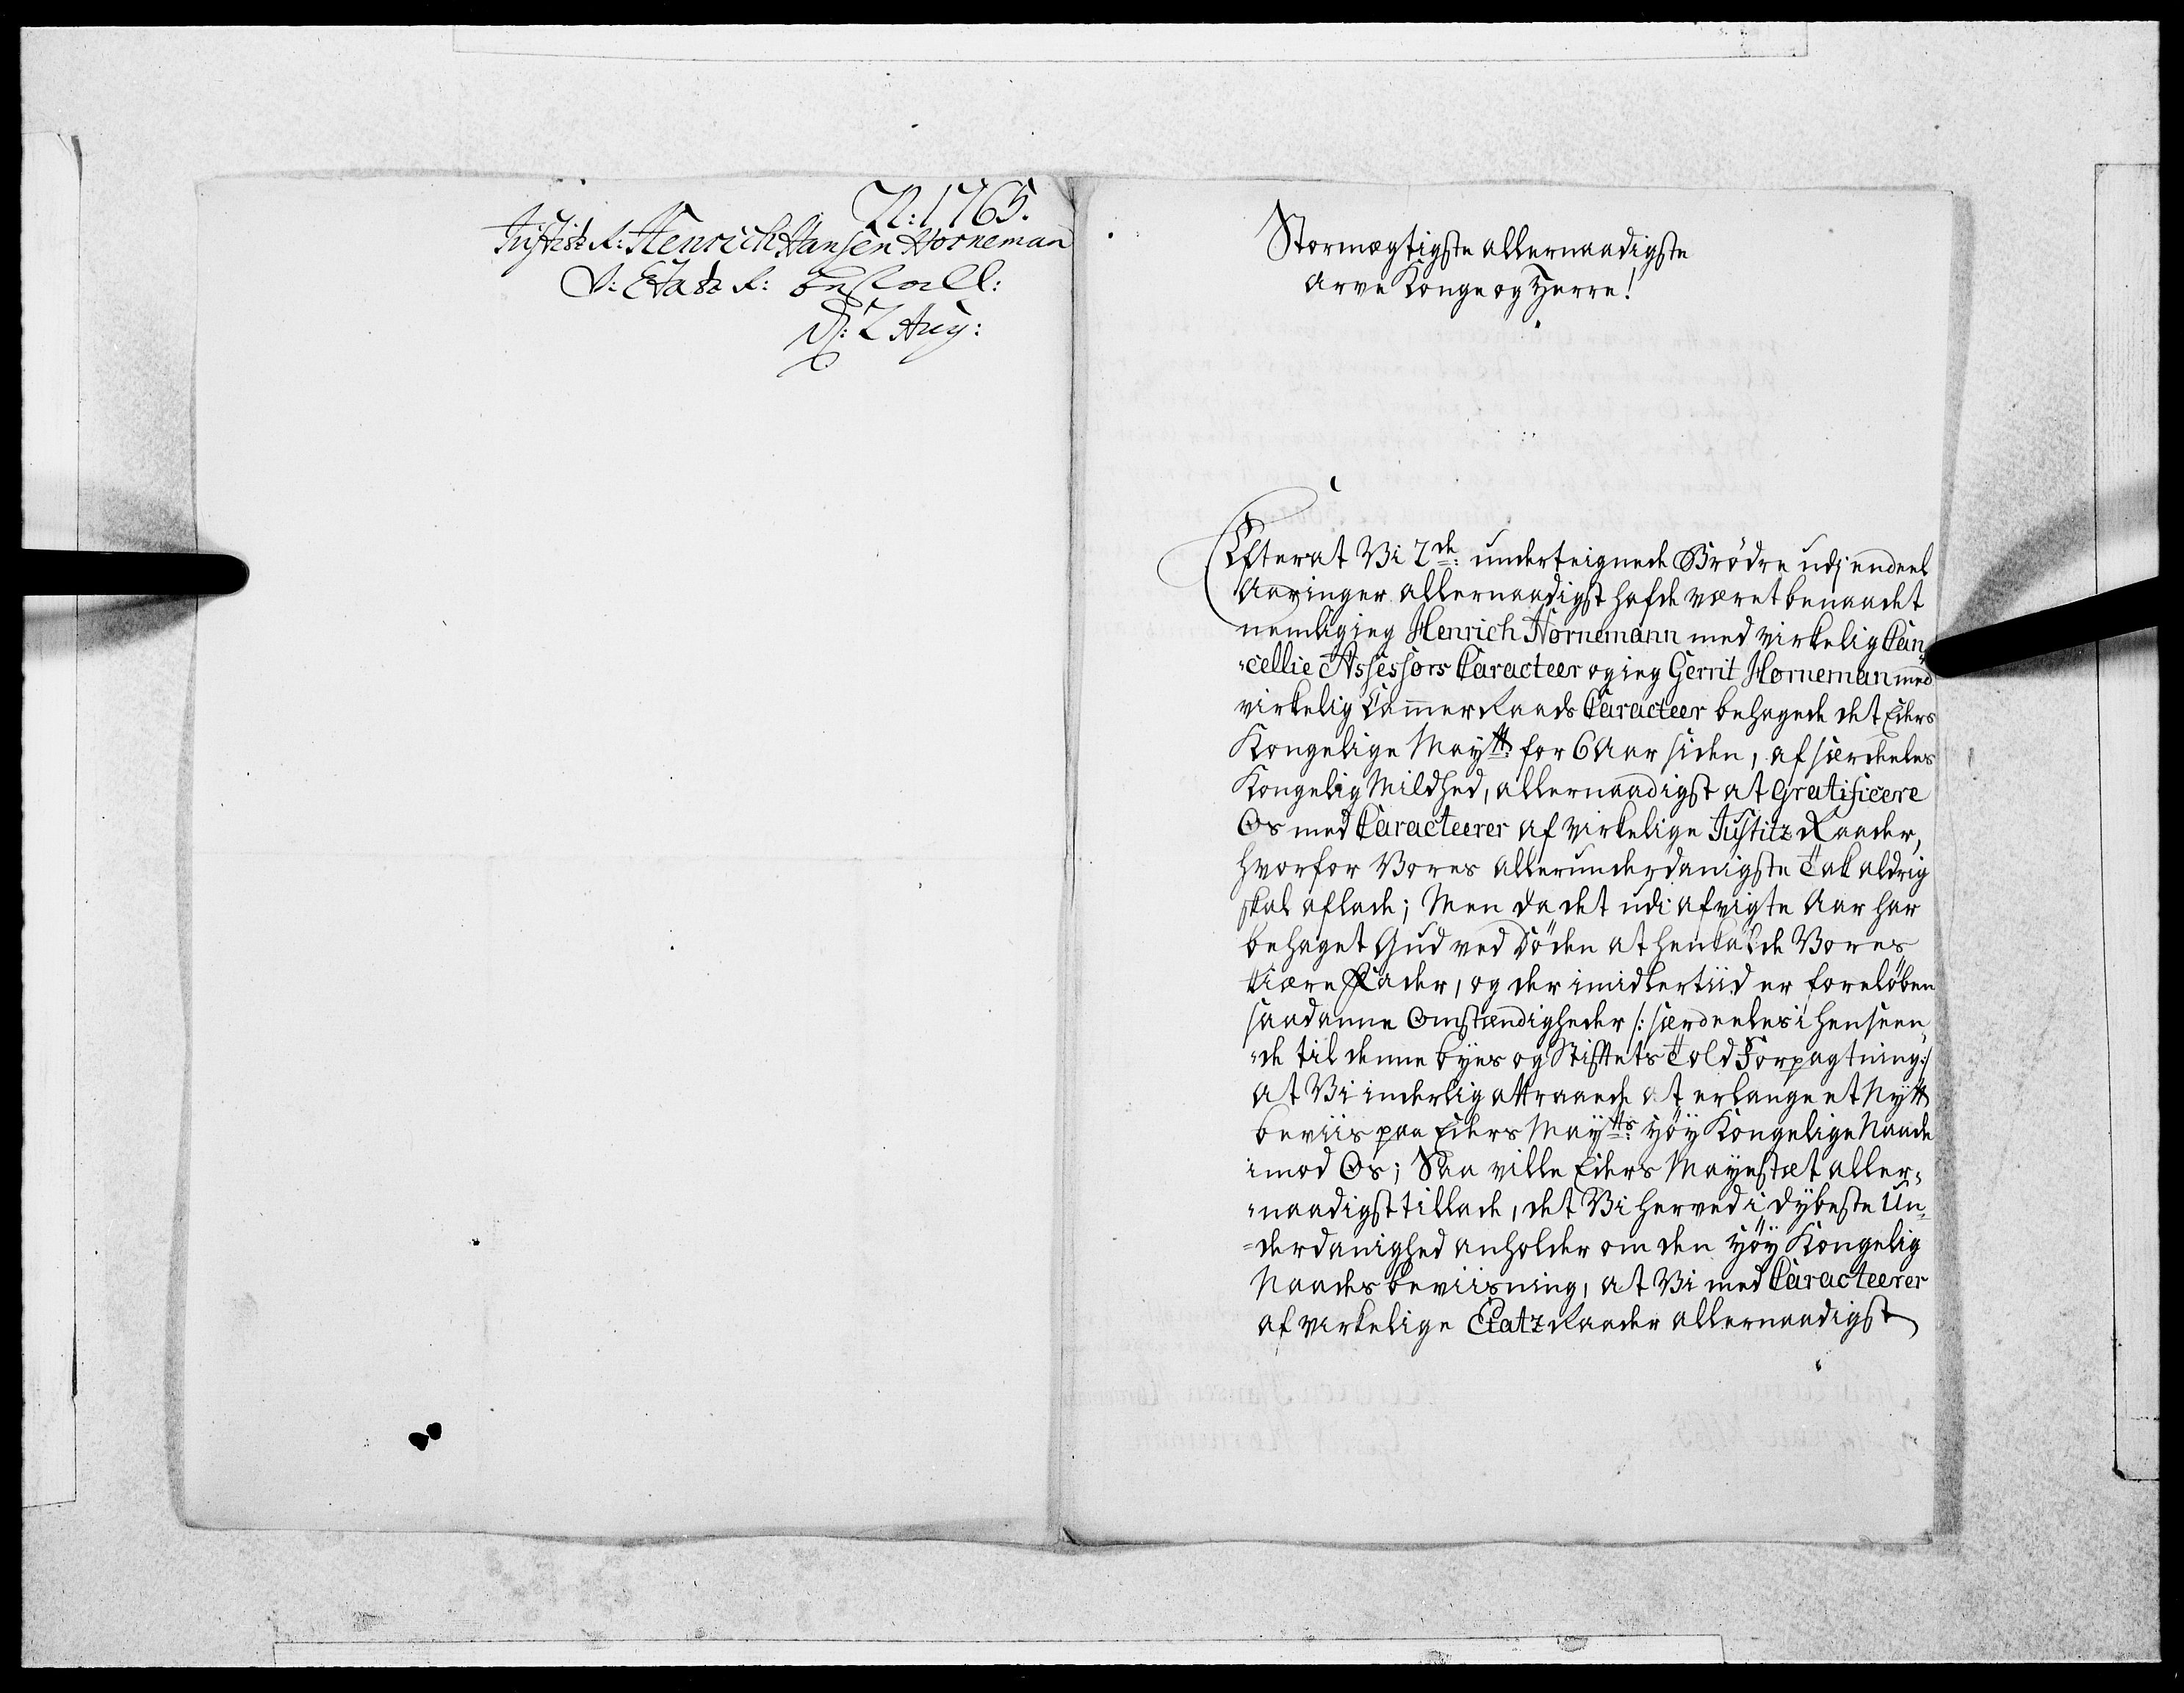 A: 1765.
Justitz R: Henrich Hansen Horneman
V: Etatz R: bestall:
D: 2 Aug:
Stormægtigste allernaadigste
Arve Konge og Herre!
Efterat Vi 2de: underteignede Brödre udj endeel
Aaringer allernaadigst hafde været benaadet
nemlig jeg Henrich Hornemann med virkelig Can-
-cellie Assessors Caracteer og jeg Gerrit Horneman med
virkelig Cammer Raads Caracteer behagede det Eders
Kongelige Maytt: for 6 Aar siden, af særdeeles
Kongelig Mildhed, allernaadigst at Gratificere
Os med Caracteerer af virkelige Justitz Raader,
hvorfor Vores allerunderdanigste Tak aldrig
skal aflade; Men da det udi afvigte Aar har
behaget Gud ved Döden at henkalde Vores
kiære Fader, og der imidlertiid er foreløben
saadanne Omstændigheder /: særdeeles i henseen-
-de til denne byes og Stiftets Told Forpagtning :/
at Vi inderlig attraaede at erlange et Nytt
beviis paa Eders Maytts: Höy Kongelige Naade
imod Os; Saa ville Eders Mayestæt aller-
-naadigst tillade, det Vi herved i dybeste Un-
-derdanighed anholder om den Höy Kongelig
Naades beviisning, at Vi med Caracteerer
af virkelige Etatz Raader allernaadigst